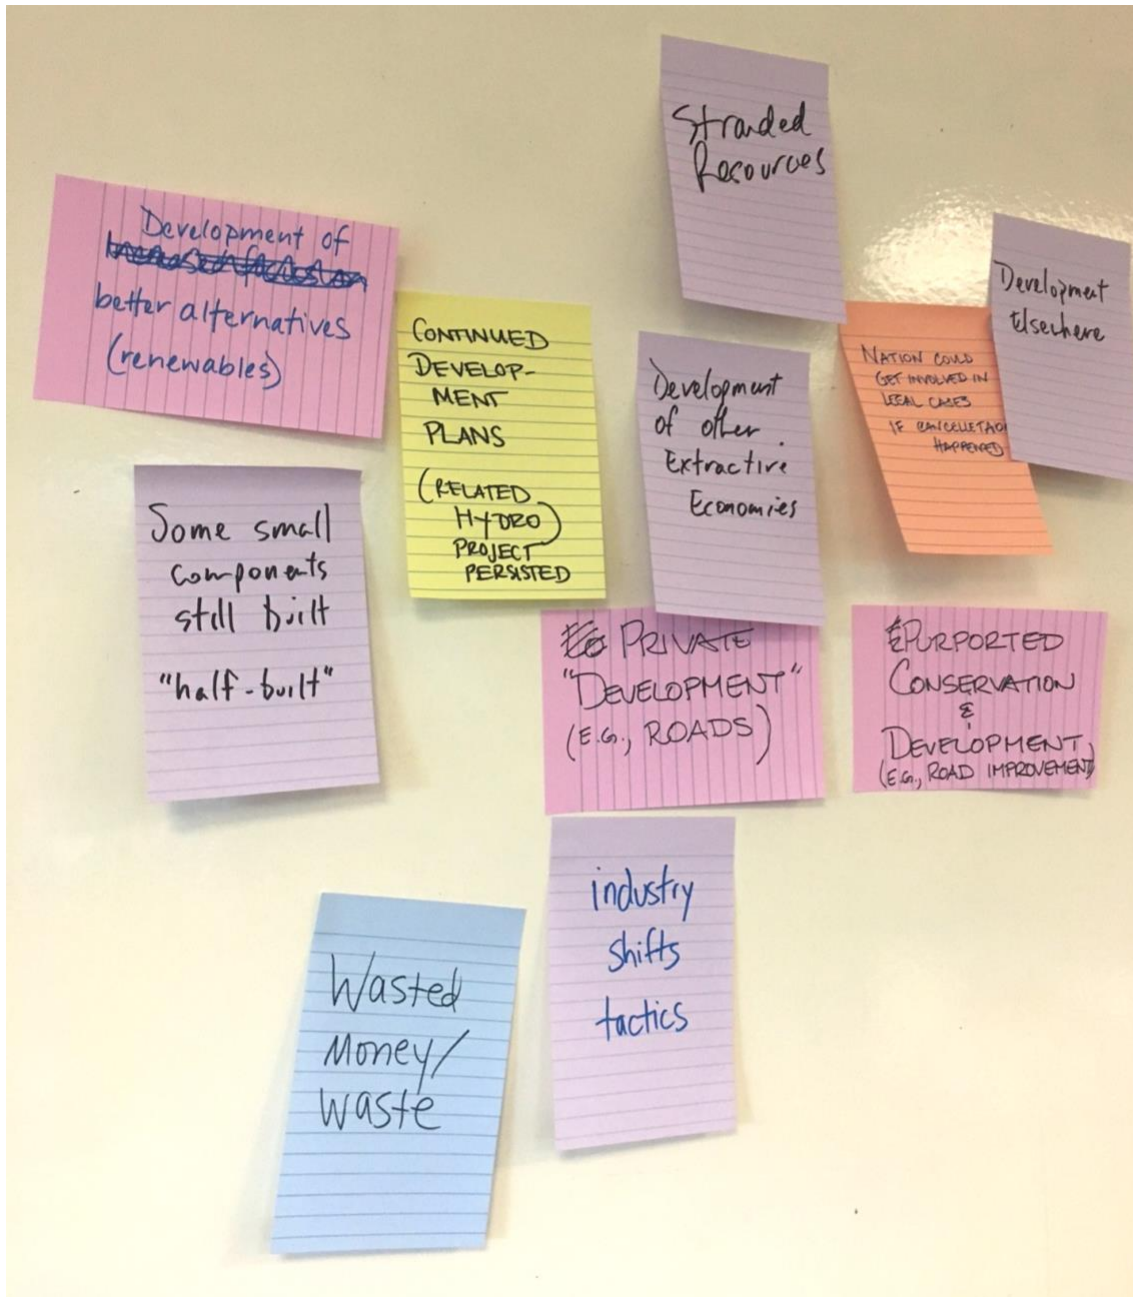 Stranded
Resources
Development of
better alternatives
(renewables)
Development
Elsechere
CONTINUED
DEVELOP-
MENT
PLANS
(RELATED
HYDRO)
PROJECT
PERSISTED
Development
of other
Extractive
Economies
NATION COULD
GET INVOLVED IN
LEGAL CASES
IF CANCELLETAO
HAPPENED
Some small
components
still built
"half-built"
PRIVATE
"DEVELOPMENT"
(E.G., ROADS)
PURPORTED
CONSERVATION
&
DEVELOPMENT,
(E.G., ROAD IMPROVEMENT)
industry
shifts
tactics
Wasted
Money/
Waste